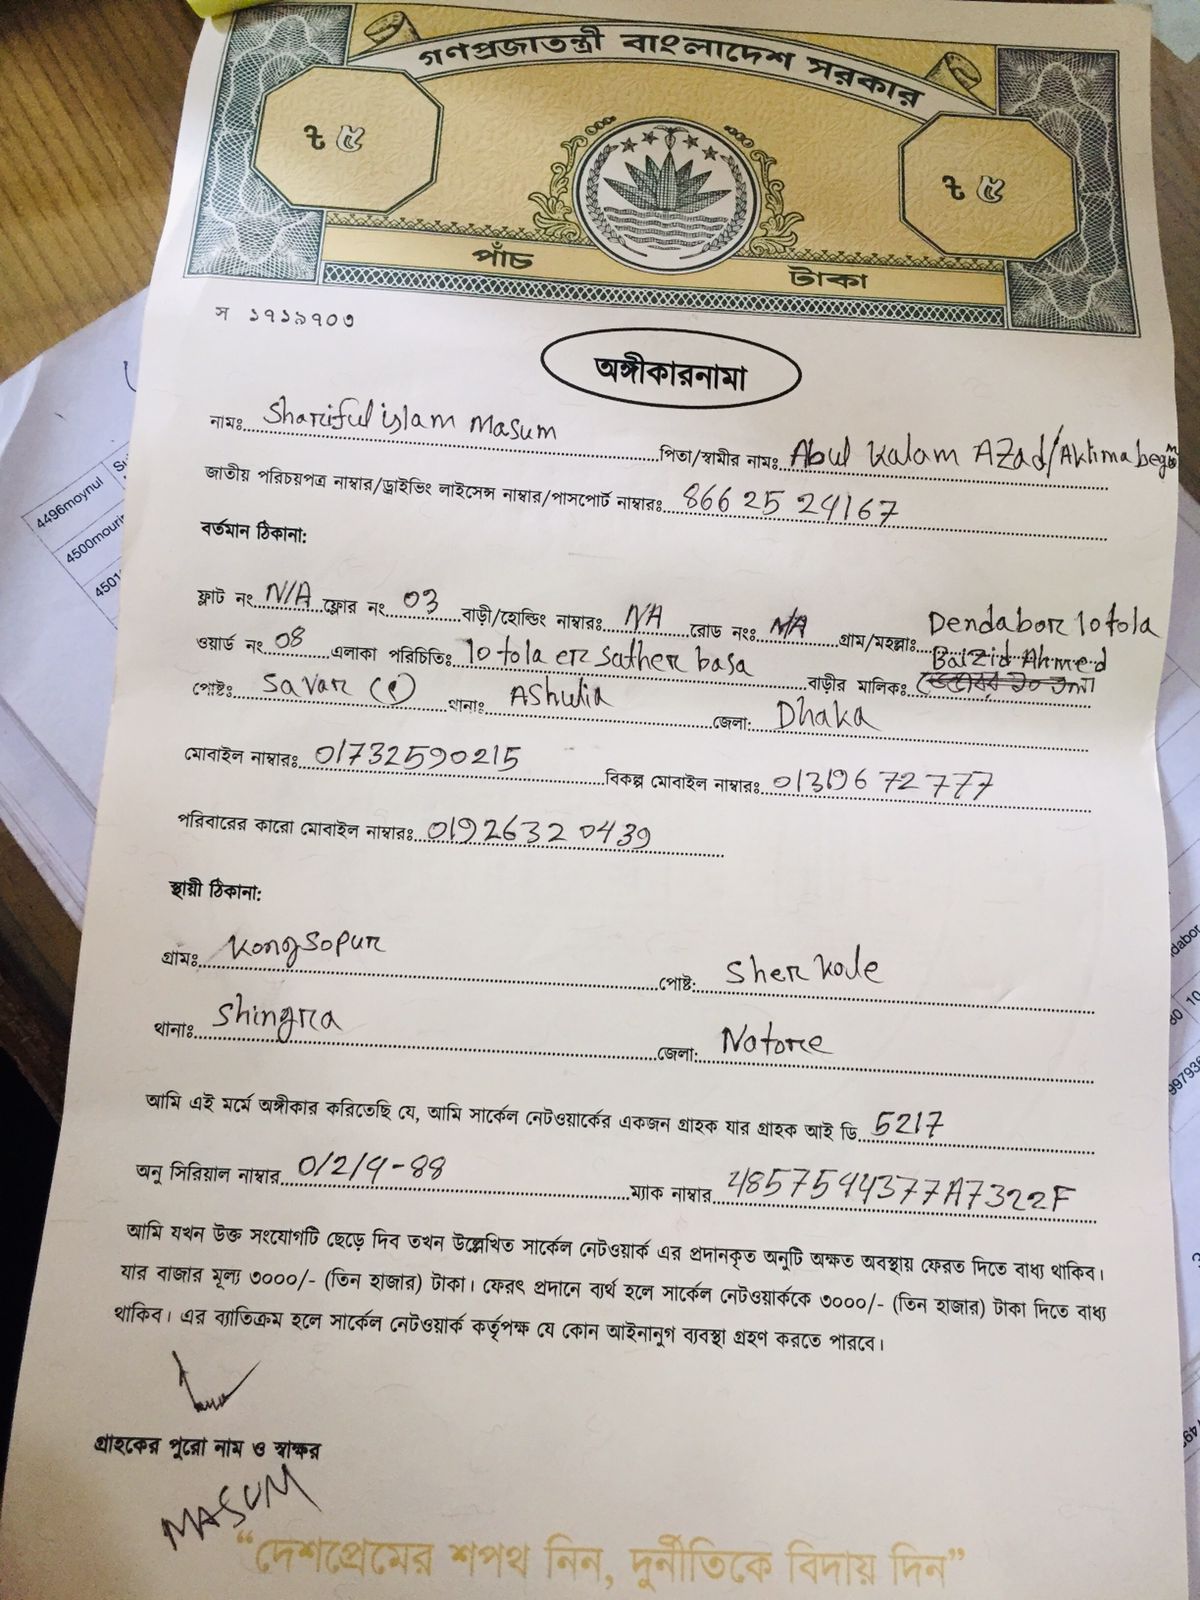 গণপ্রজাতন্ত্রী বাংলাদেশ সরকার
৳ ৫
৳ ৫
পাঁচ টাকা
স ১৭১৯৭০৩
অঙ্গীকারনামা
নামঃ Shariful islam Masum পিতা/স্বামীর নামঃ Abul Kalam Azad/Aklima begum
জাতীয় পরিচয়পত্র নাম্বার/ড্রাইভিং লাইসেন্স নাম্বার/পাসপোর্ট নাম্বারঃ 866 25 24167
বর্তমান ঠিকানা:
ফ্লাট নং N/A ফ্লোর নং 03 বাড়ী/হোল্ডিং নাম্বারঃ N/A রোড নংঃ N/A গ্রাম/মহল্লাঃ Dendabor 10 tola
ওয়ার্ড নং 08 এলাকা পরিচিতিঃ 10 tola er sather basa বাড়ীর মালিকঃ Baizid Ahmed
পোষ্টঃ Savar থানাঃ Ashulia জেলা: Dhaka
মোবাইল নাম্বারঃ 01732590215 বিকল্প মোবাইল নাম্বারঃ 01319672777
পরিবারের কারো মোবাইল নাম্বারঃ 01926320439
স্থায়ী ঠিকানা:
গ্রামঃ Kongsopur পোষ্ট: Sher kole
থানাঃ Shingra জেলা: Natore
আমি এই মর্মে অঙ্গীকার করিতেছি যে, আমি সার্কেল নেটওয়ার্কের একজন গ্রাহক যার গ্রাহক আই ডি 5217
অনু সিরিয়াল নাম্বার 0/2/4-88 ম্যাক নাম্বার 48575444377A7322F
আমি যখন উক্ত সংযোগটি ছেড়ে দিব তখন উল্লেখিত সার্কেল নেটওয়ার্ক এর প্রদানকৃত অনুটি অক্ষত অবস্থায় ফেরত দিতে বাধ্য থাকিব।
যার বাজার মূল্য ৩০০০/- (তিন হাজার) টাকা। ফেরৎ প্রদানে ব্যর্থ হলে সার্কেল নেটওয়ার্ককে ৩০০০/- (তিন হাজার) টাকা দিতে বাধ্য
থাকিব। এর ব্যাতিক্রম হলে সার্কেল নেটওয়ার্ক কর্তৃপক্ষ যে কোন আইনানুগ ব্যবস্থা গ্রহণ করতে পারবে।
গ্রাহকের পুরো নাম ও স্বাক্ষর
MASUM
“দেশপ্রেমের শপথ নিন, দুর্নীতিকে বিদায় দিন”
4496moynul
4500mouri